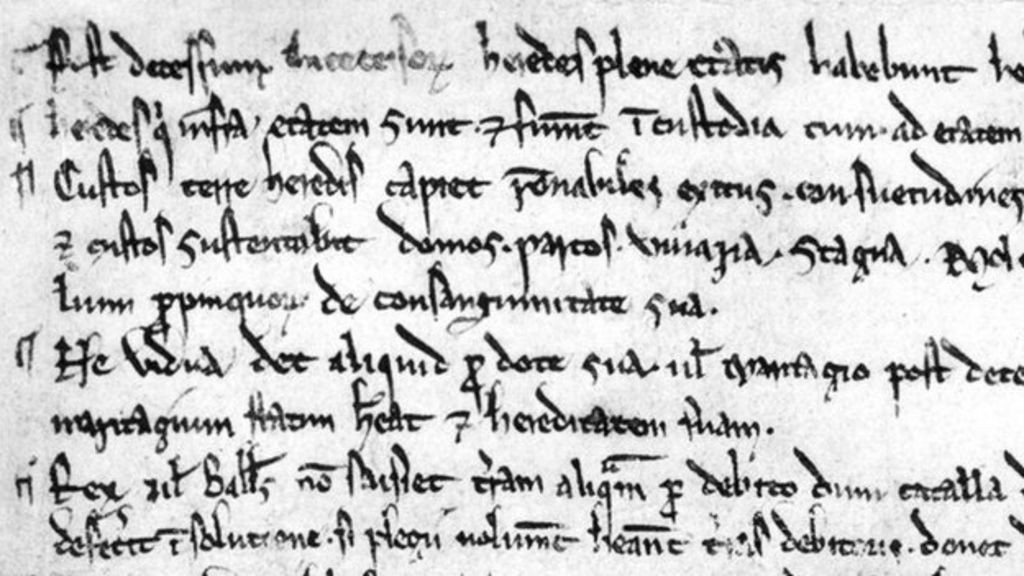 Post decessum antecessoꝝ heredes plene etatis habebunt he
heredes q̇ infra etatem sunt ⁊ fuerīt ī custodia cum ad etatem
Custos terre heredis capiet rōnabiles exitus. consuetudines
⁊ custos sustentabit domos. parcos. vivaria. stagna. Mole
lium ꝓpinquoꝝ de consanguinitate sua.
Ne vidua det aliquid ꝓ dote sua. ul̄ maritagio post dece
maritagium statim h̄eat ⁊ hereditatem suam.
Rex ul̄ Ball̄s nō saisiet t̄ram aliquā ꝓ debito dum catalla
defec̄it ī solutione. si plegii voluerīt h̄eant t̄ras debitoris. donec